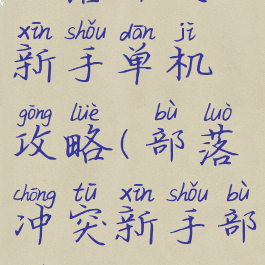 xīn shǒu dān jī
新手单机
gōng lüè bù luò
攻略(部落
chōng tū xīn shǒu bù
冲突新手部